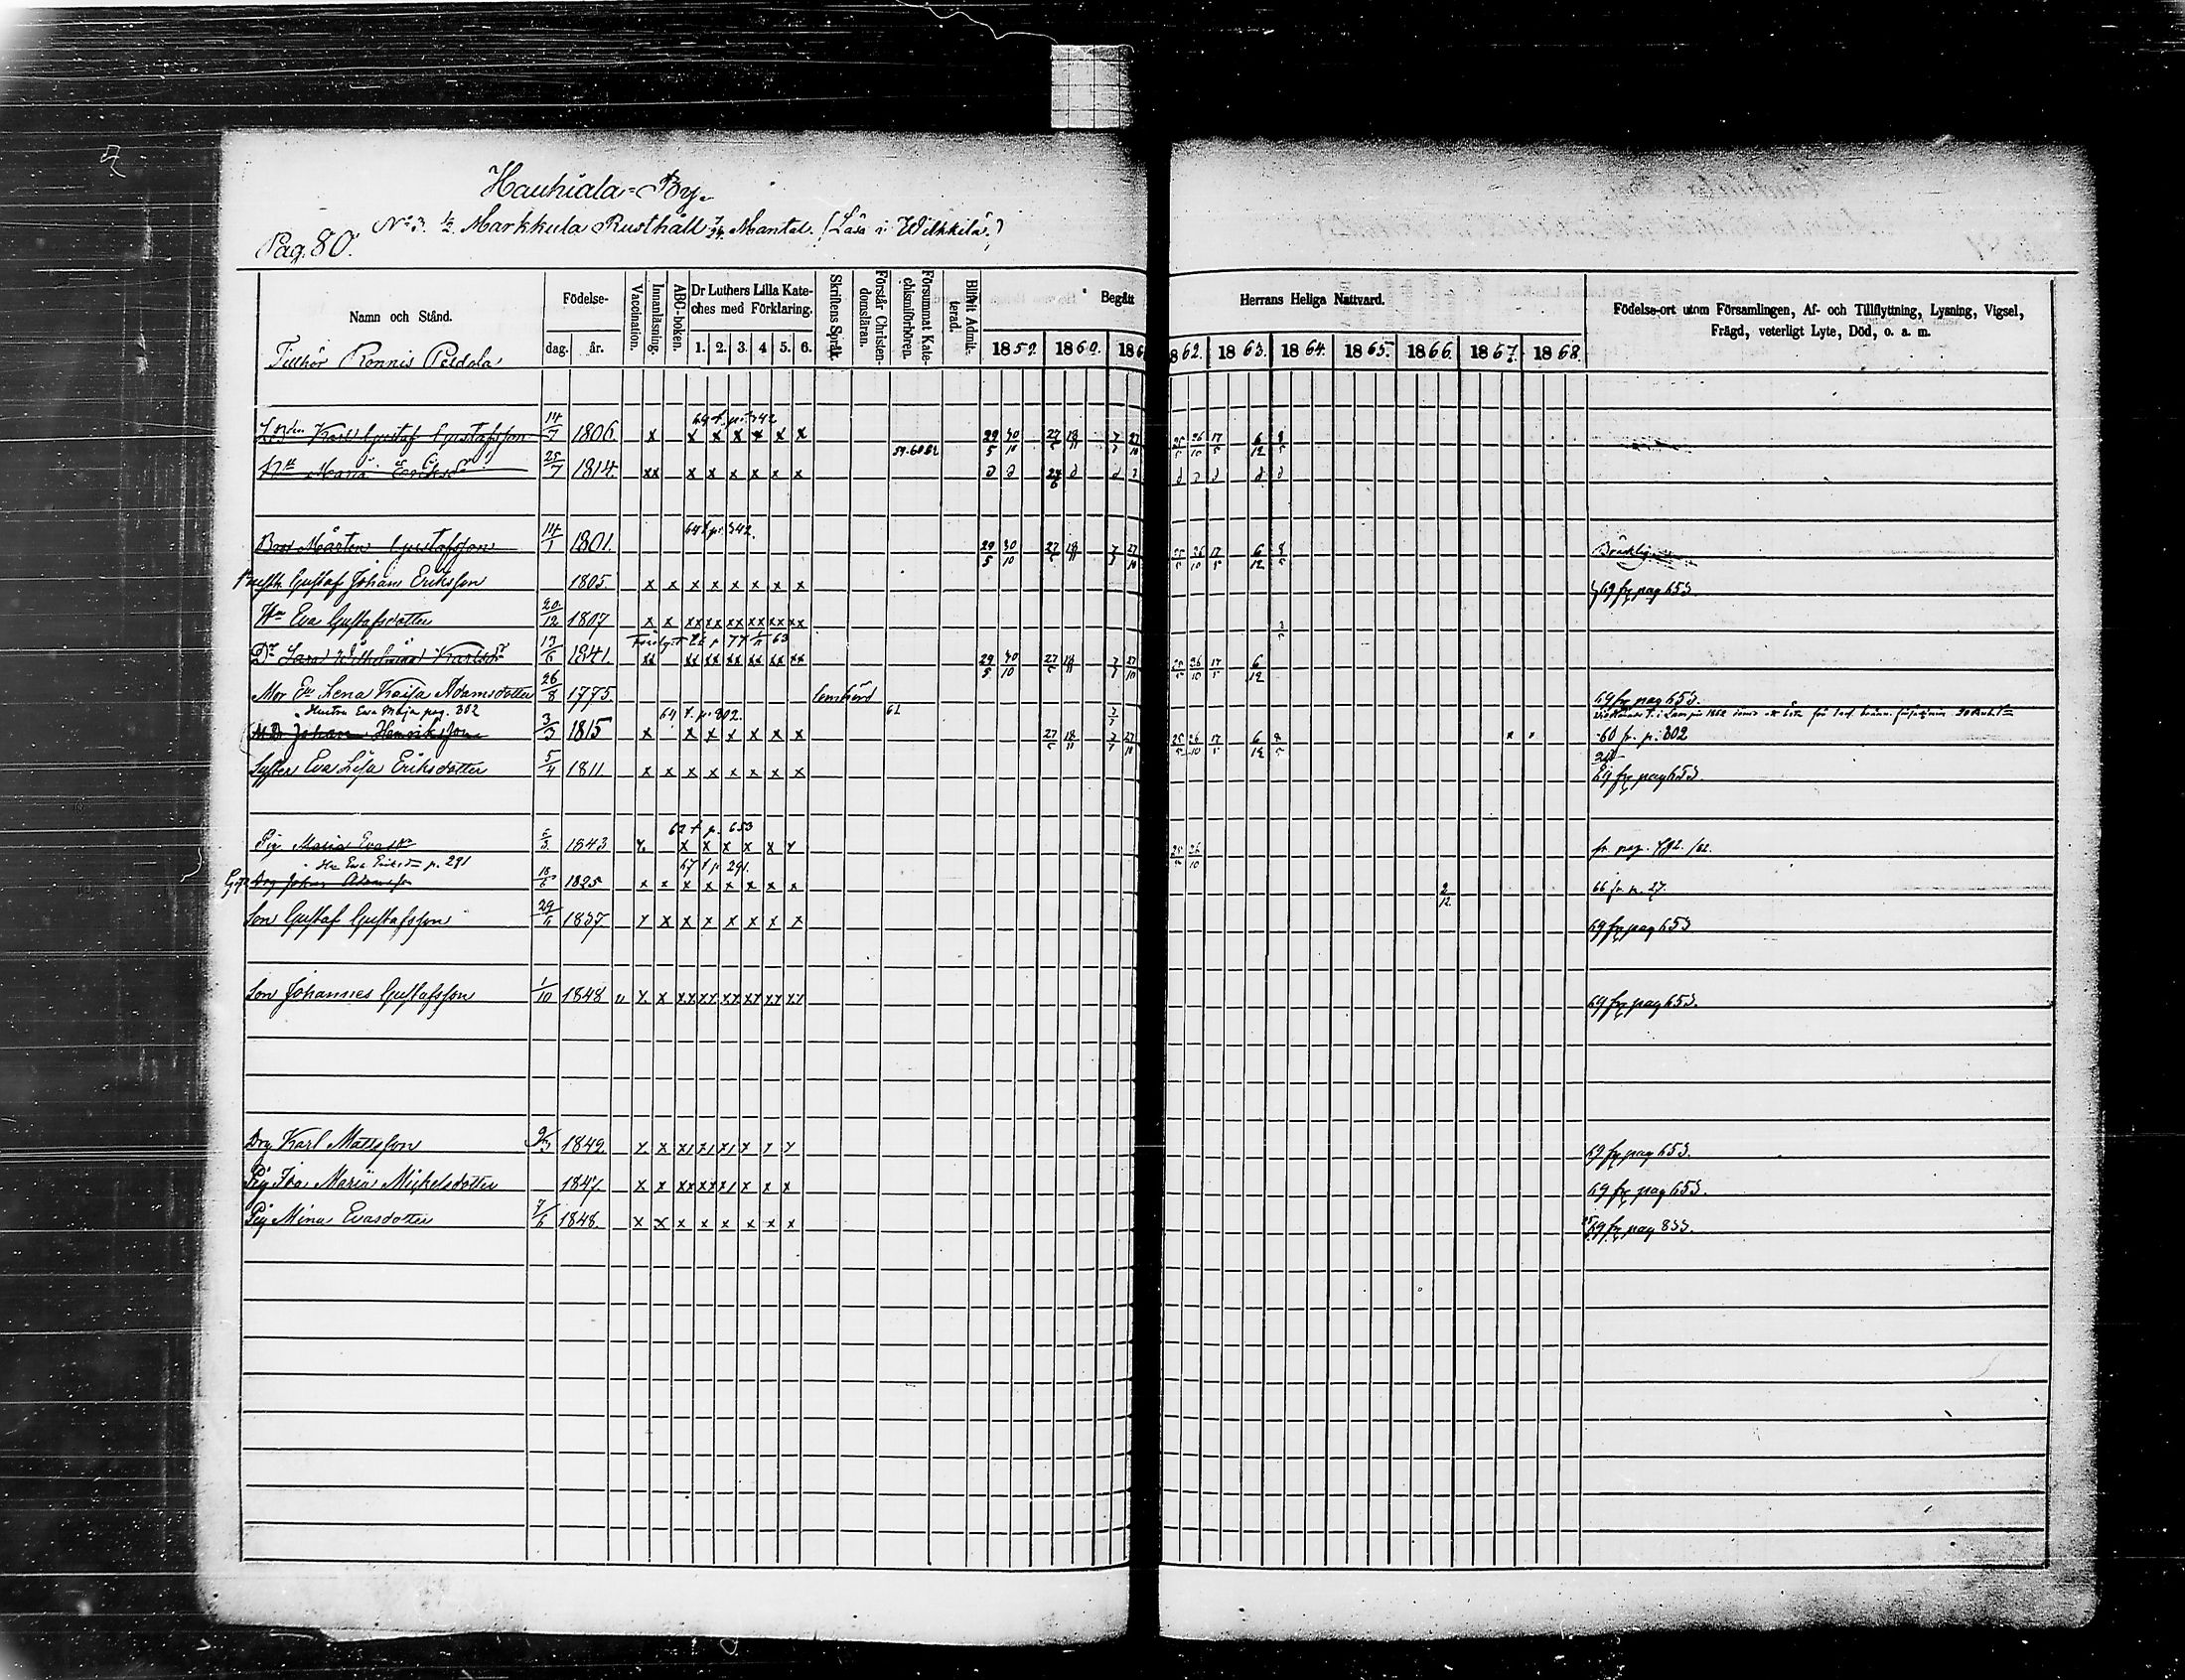 Hauhiala-By.
No 3. 1/2 Markkula Rusthåll 7/24 Mantal. (Läsa i Wilkkilä.)
Pag. 80.
Namn och Stånd.
Tillhör Ronnis Peldola
Födelse-
dag. år.
Vaccination.
Innanläsning.
ABC-boken.
Dr Luthers Lilla Kate-
ches med Förklaring.
1. 2. 3. 4 5. 6.
Skriftens Språk.
Förstår Christen-
domsläran.
Försummat Kate-
chismiförhören.
Blifvit Admit-
terad.
Begått Herrans Heliga Nattvard.
1859. 1860. 186 62. 1863. 1864. 1865. 1866. 1867. 1868.
Födelse-ort utom Församlingen, Af- och Tillflyttning, Lysning, Vigsel,
Frägd, veterligt Lyte, Död, o. a. m.
64 t. p. 342
Karl Gustaf Gustafsson 14/7 1806 x x x x x x x 29/5 30/10 27/5 18/11 25/5 26/10 17/5 6/12 8/5
59.60.62
Maria Eriksdr 25/7 1814. xx x x x x x x
64 t. p. 342.
Bror Mårten Gustafsson 14/1 1801. 29/5 30/10 27/5 18/11 25/5 26/10 17/5 6/12 8/5 Bräcklig
Gustaf Johan Eriksson 1805. x x x x x x x x 69 fr pag 653
Hu Eva Gustafsdotter 20/12 1807 x x xx xx xx xx xx xx
Dr Sara Wilhelmina Karlsdr 17/6 1841. xx xx xx xx xx xx xx 29/5 30/10 27/5 18/11 25/5 26/10 17/5 6/12
Mor Lena Kaisa Adamsdotter 26/8 1775. 69 fr pag 653
Hustru Eva Maja pag. 302 64 t. p. 302. 61
Johan Henriksson 3/3 1815 x x x x x x x 27/5 18/11 25/5 26/10 17/5 6/12 8/5 60 fr. p. 302
Syster Eva Lisa Eriksdotter 5/4 1811 x x x x x x x x 69 fr pag 653
62 t p. 653
Pig Maria Evasdr 5/3 1843 x x x x x x x 25/5 26/10 fr. pag. 192. /62.
Hu Eva p. 291 67 t p 291.
Drg Johan Adamsson 18/6 1825 x x x x x x x x 2/12 66 fr. p. 27.
Son Gustaf Gustafsson 29/11 1837 x x x x x x x x 69 fr pag 653
Son Johannes Gustafsson 1/10 1848 x x xx xx xx xx xx xx 69 fr pag 653.
Drg Karl Matsson 9/3 1849. x x x x x x x x 69 fr pag 653.
Pig Ika Maria Mickelsdotter 1847. x x xx xx x x x x 69 fr pag 653.
Pig Mina Evasdotter 7/6 1848. x x x x x x x x 69 fr pag 833.